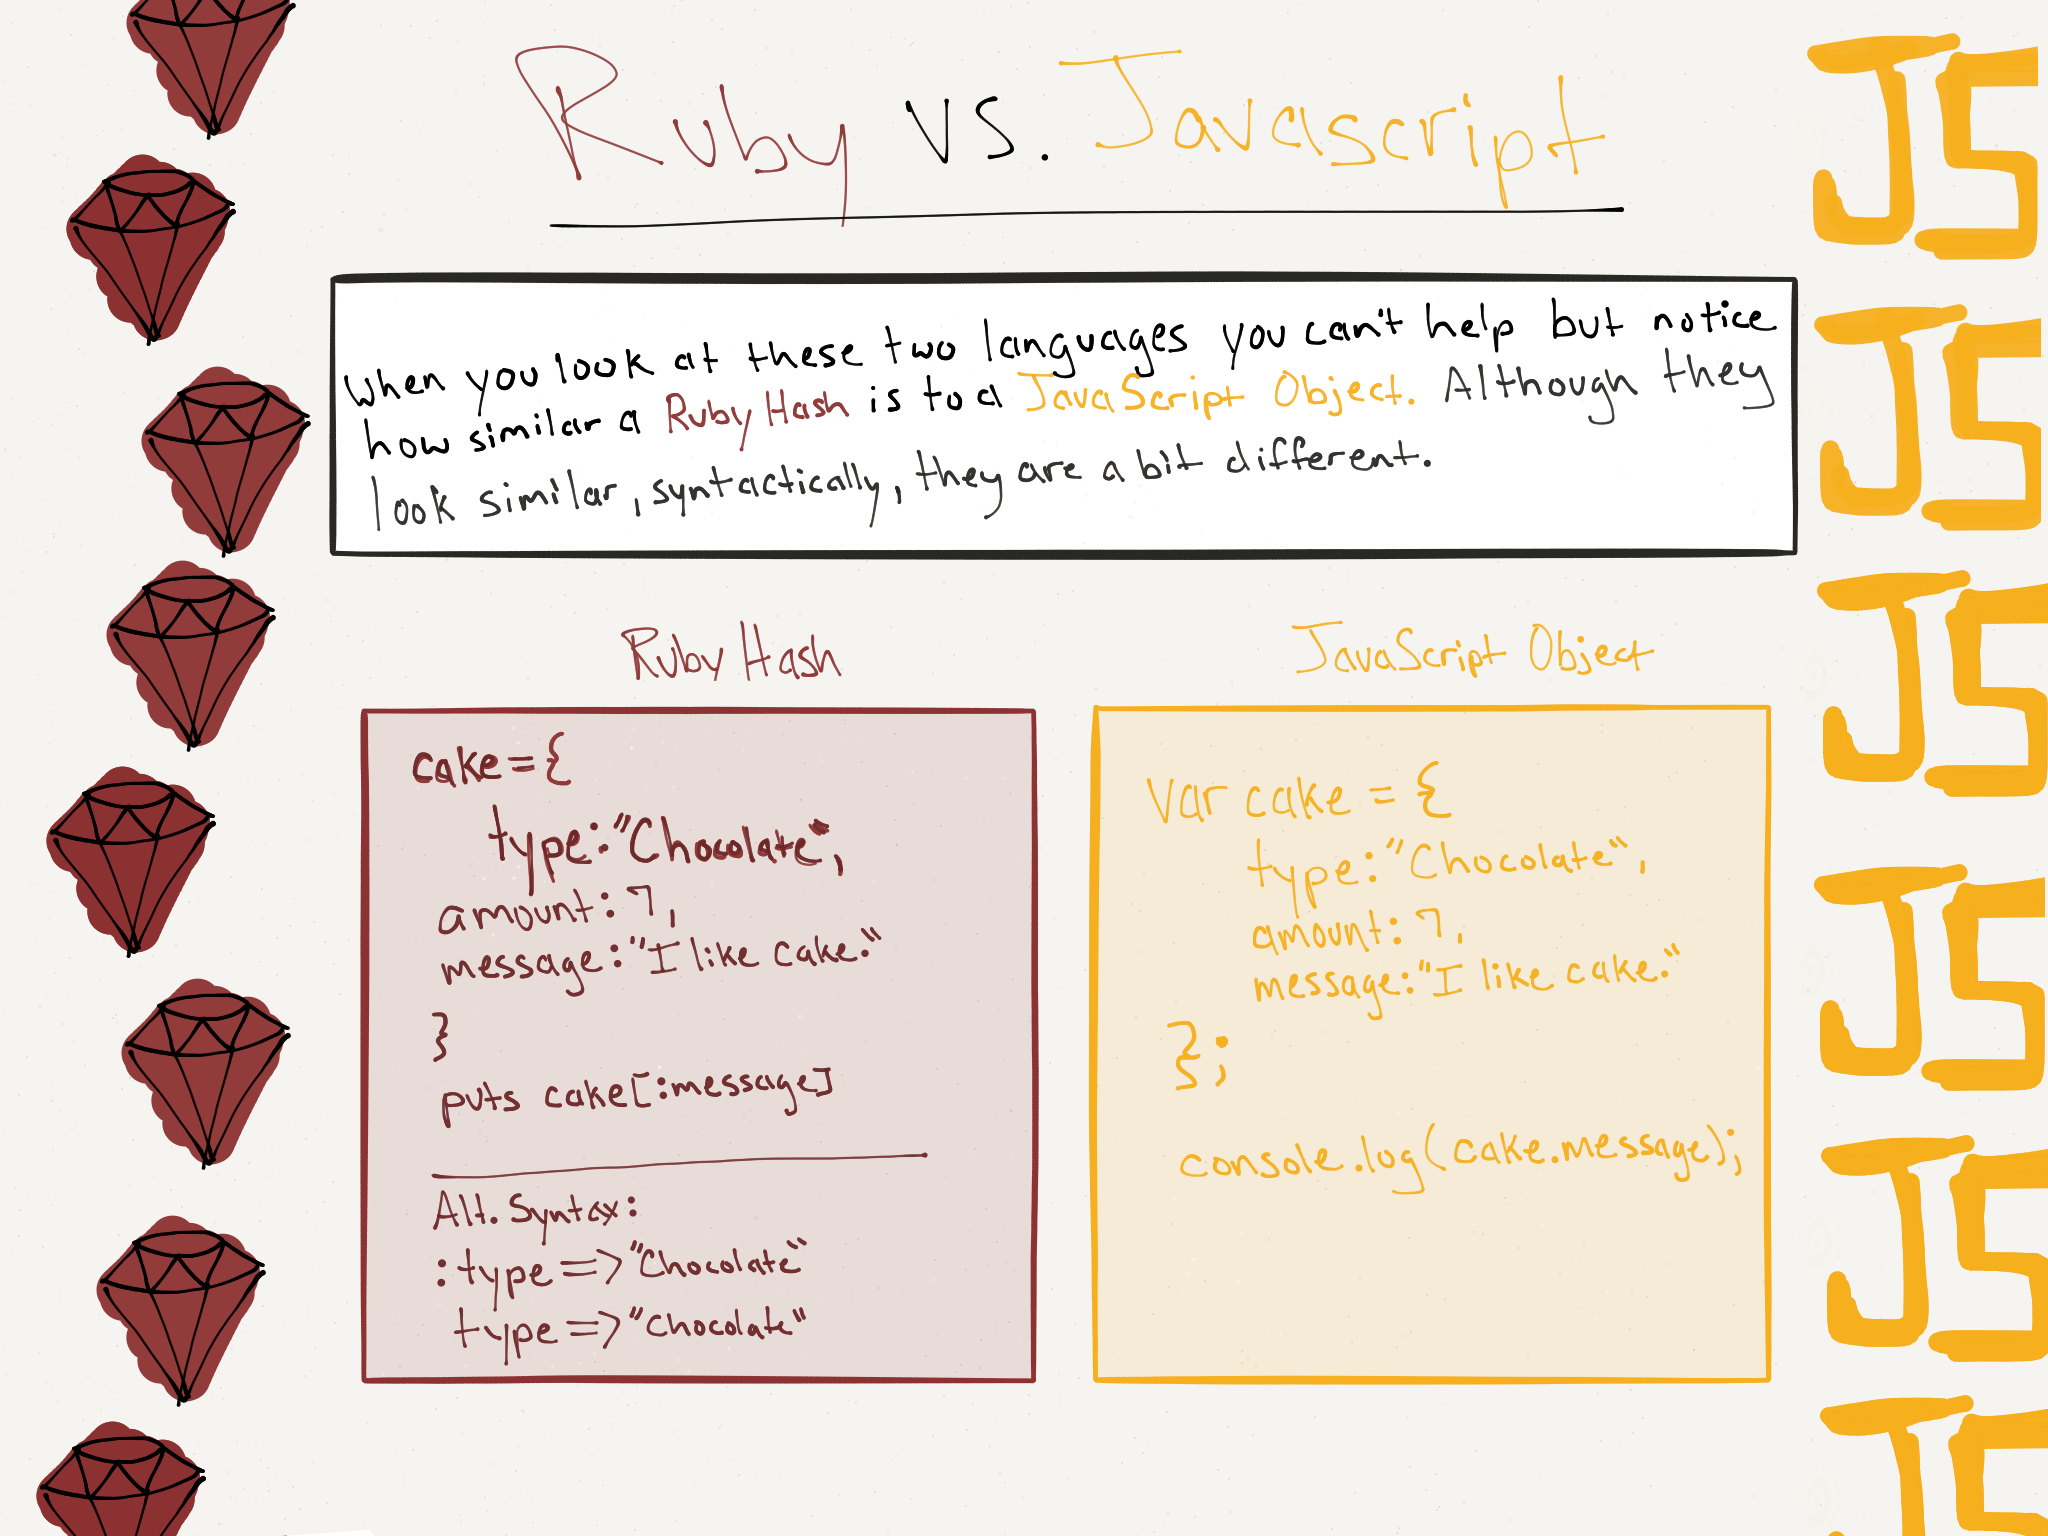 Ruby vs. Javascript
When you look at these two languages you can't help but notice
how similar a Ruby Hash is to a JavaScript Object. Although they
look similar, syntactically, they are a bit different.
Ruby Hash
cake={
type:"Chocolate",
amount:7,
message:"I like cake."
}
puts cake[:message]
Alt. Syntax:
:type=>"Chocolate"
type=>"Chocolate"
JavaScript Object
var cake = {
type:"Chocolate",
amount:7,
message:"I like cake."
};
console.log(cake.message);
JS
JS
JS
JS
JS
JS